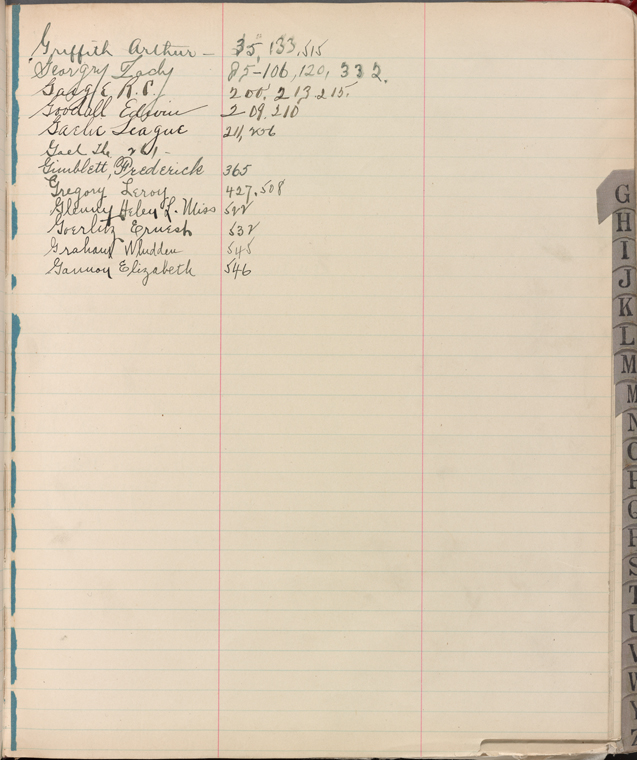 Griffith Arthur - 35, 133, 515
Georgry Lady 85-106, 120, 332.
R.P. 200, 213, 215.
Goodall Edwin 209, 210
Gaelic League 211, 206
Gael The 201-
Gimblett, Frederick 365
Gregory Leroy 427, 508
Glenny Helen L. Miss 522
Goerlitz Ernest 532
Graham Whidden 545
Gannon Elizabeth 546
G
H
I
J
K
L
M
M
N
O
P
Q
R
S
T
U
V
W
Y
Z